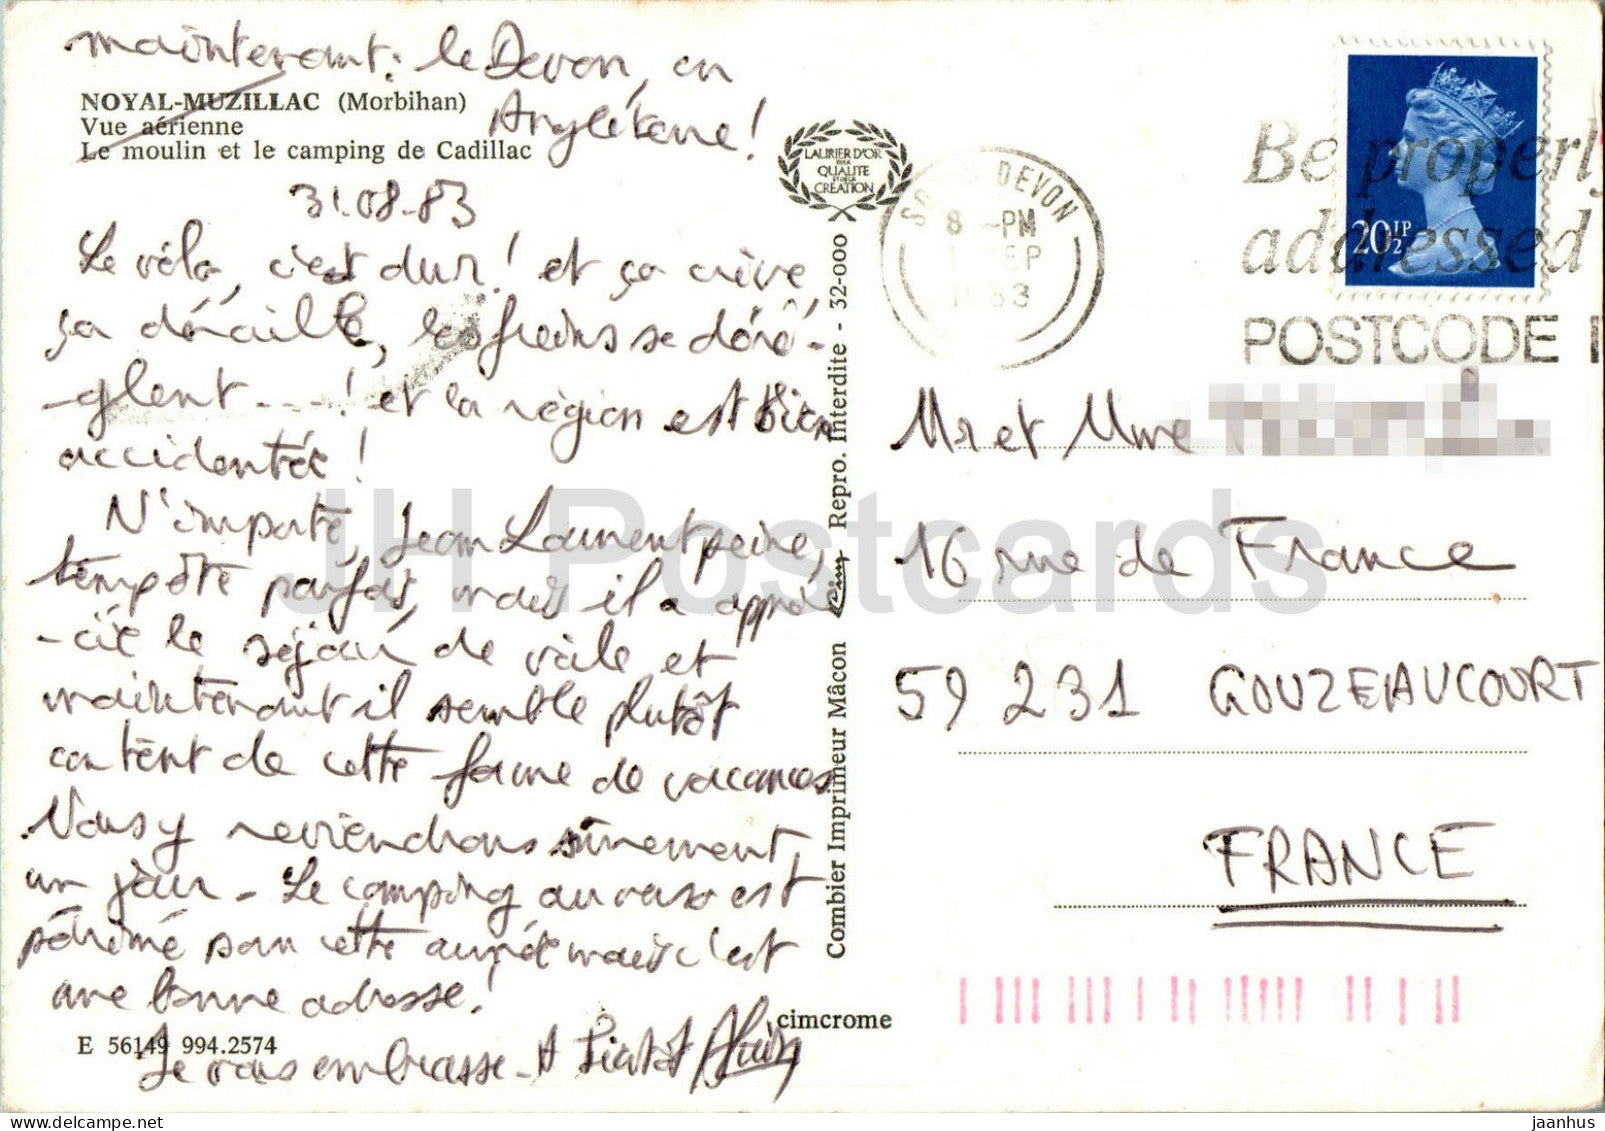 maintenant : le Devon, en
Anglétterre !
NOYAL-MUZILLAC (Morbihan)
Vue aérienne
Le moulin et le camping de Cadillac
31.08-83
Le vélo, c'est dur ! et ça crève,
ça déraille, les freins se déré-
-glent ----! et la région est bien
accidentée !
N'importe, Jean Laurent peine,
tempête parfois, mais il a appré-
-cié le séjour de voile et
maintenant il semble plutôt
content de cette forme de vacances
Nous y reviendrons sûrement,
un jour - Le camping au verso est
périmé pour cette année mais c'est
une bonne adresse !
Je vous embrasse - A bientôt Alain
E 56149 994.2574
cimcrome
LAURIER D'OR
DE LA
QUALITE
ET DE LA
CRÉATION
Combier Imprimeur Mâcon Cim Repro. Interdite - 32-000
SOUTH DEVON
8 -PM
1 SEP
1983
20½P
Be properly
addressed
POSTCODE I
Mr et Mme
16 rue de France
59 231 GOUZEAUCOURT
FRANCE
JH Postcards
jaanhus
delcampe.net